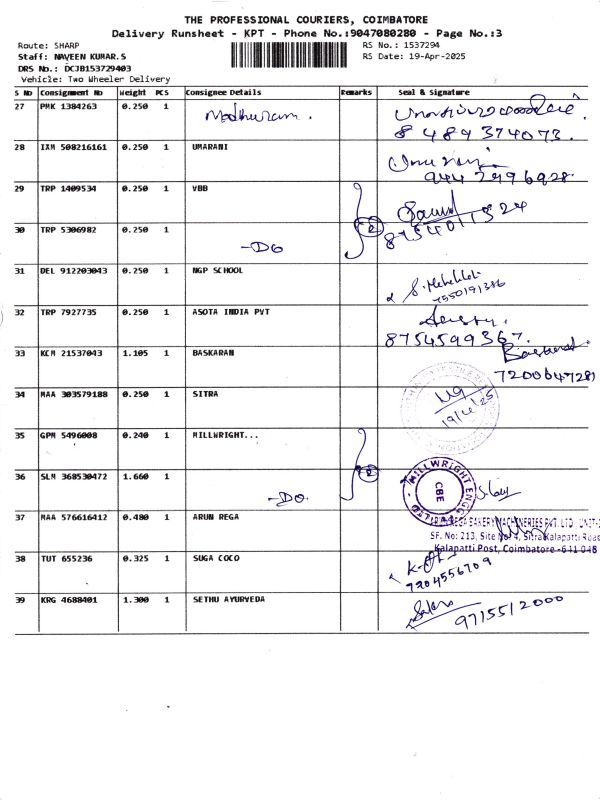 THE PROFESSIONAL COURIERS, COIMBATORE
Delivery Runsheet - KPT - Phone No.:9047080280 - Page No.:3
Route: SHARP RS No.: 1537294
Staff: NAVEEN KUMAR.S RS Date: 19-Apr-2025
DRS No.: DCJB153729403
Vehicle: Two Wheeler Delivery
S No Consignment No Weight PCS Consignee Details Remarks Seal & signature
27 PMK 1384263 0.250 1 Madhuram.
8489374073.
28 IXM 508216161 0.250 1 UMARANI
9442996928
29 TRP 1409534 0.250 1 VBB
8754011324
30 TRP 5306982 0.250 1 -DO 2
31 DEL 912203043 0.250 1 NGP SCHOOL
7550191386
32 TRP 7927735 0.250 1 ASOTA INDIA PVT
8754599367.
33 KCM 21537043 1.105 1 BASKARAN Baskaran
7200647281
34 MAA 303579188 0.250 1 SITRA
19/4/25
35 GPM 5496008 0.240 1 MILLWRIGHT...
36 SLM 368530472 1.660 1 -DO. 2
MILLWRIGHT ENGG
CBE
37 MAA 576616412 0.480 1 ARUN REGA
REGA BAKERY MACHINERIES PVT. LTD., UNIT-
SF. No: 213, Site No 4, Sitra Kalapatti Road
Kalapatti Post, Coimbatore - 641 048
38 TUT 655236 0.325 1 SUGA COCO
7204556709
39 KRG 4688401 1.300 1 SETHU AYURVEDA
9715512000